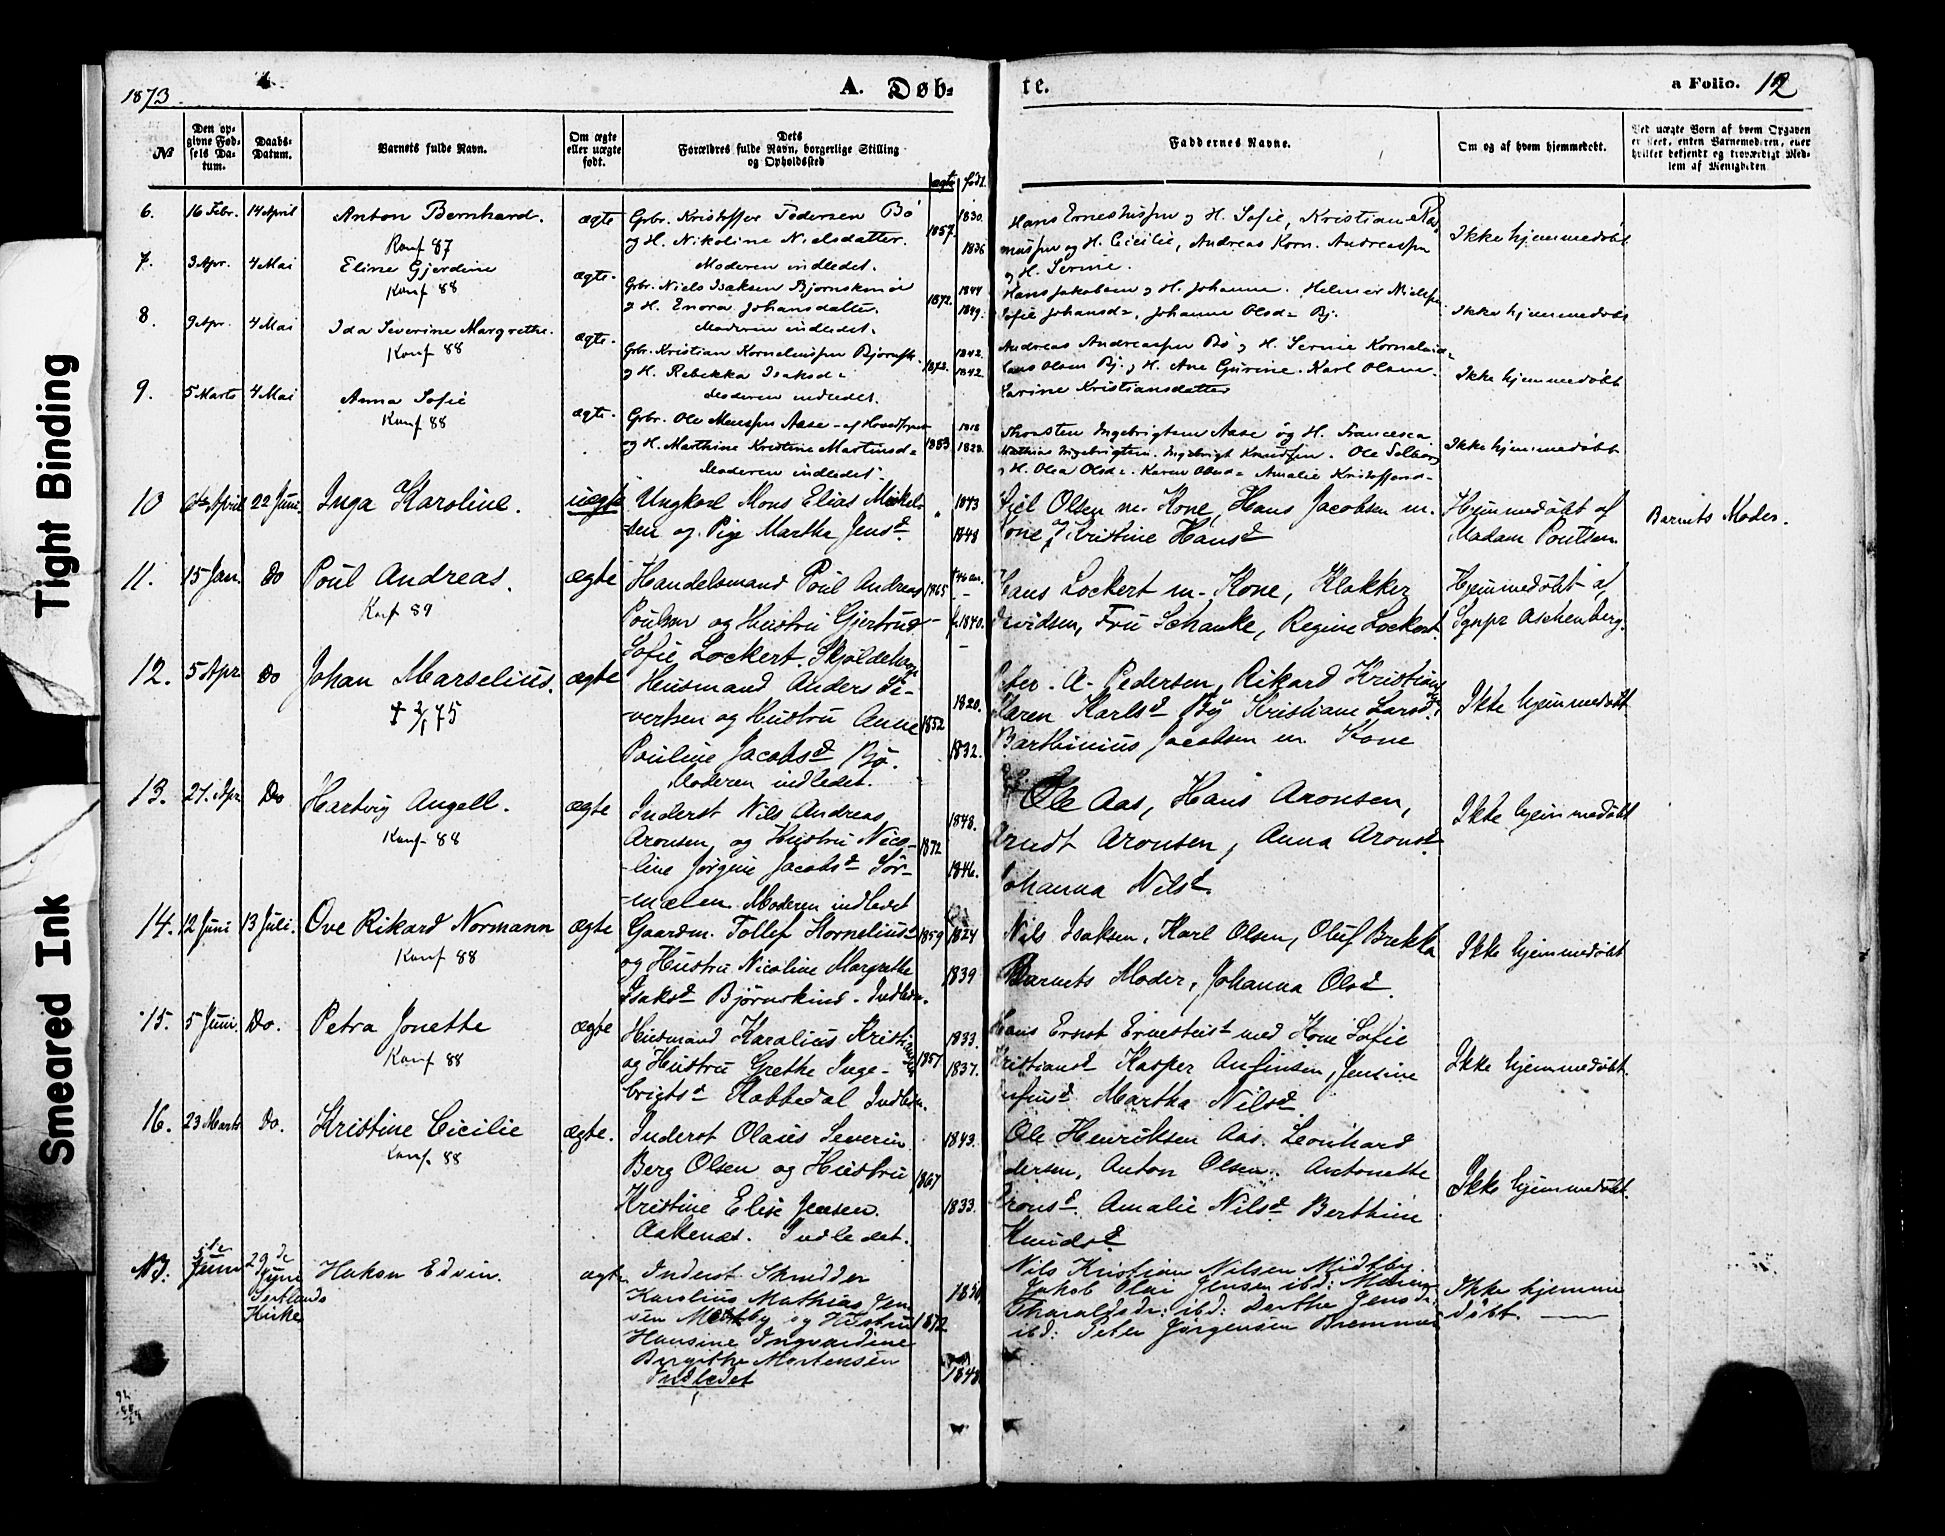 Tight Binding
Smeared Ink
1873.
A. Døb-
te.
a Folio. 12
No
Den op-
givne Fød-
sels Da-
tum.
Daabs-
Datum.
Barnets fulde Navn.
Om ægte
eller uægte
født.
Dets
Forældres fulde Navn, borgerlige Stilling
og Opholdssted
ægtv. født.
Faddernes Navne.
Om og af hvem hjemmedøbt.
Ved uægte Børn af hvem Opgaven
er skeet, enten Barnemoderen, eller
hvilket bekjendt og troværdigt Med-
lem af Menigheden
6. 16 Febr. 14 April Anton Bernhard. ægte
Konf 87
Grbr. Kristoffer Pedersen Bø
og H. Nikoline Nielsdatter.
Moderen indledet.
1857. 1830.
1836
Hans Ernestussen og H. Sofie, Kristian Ras
mussen og H. Cicilie, Andreas Korn. Andreassen
og H. Serine.
Ikke hjemmedøbt
7. 3 Apr. 4 Mai Eline Gjerdine ægte.
Konf 88
Grbr. Niels Isaksen Bjørnskin
og H. Enora Johansdatter.
Moderen indledet.
1872. 1844
1849.
Hans Jakobsen og H. Johanne. Helmer Nielsen
Sofie Johansd., Johanne Olsd. Bj.
Ikke hjemmedøbt
8. 9 Apr. 4 Mai Ida Severine Margrethe. ægte.
Konf 88
Grbr. Kristian Korneliussen Bjørnsk.
og H. Rebekka Isaksd.
Moderen indledet.
1872. 1842.
1842
Andreas Andreassen Bø og H. Serine Kornelusd.
Hans Olsen Bj. og H. Ane Gurine. Karl Olsen.
Karine Kristiansdatter
Ikke hjemmedøbt
9. 5 Marts 4 Mai Anna Sofie ægte.
Konf 88
Grbr. Ole Monssen Aase
og H. Marthine Kristine Martinsd.
Moderen indledet.
1853 1818
1828.
Thorsten Ingebrigtsen Aase og H. Francesca.
Mathias Ingebrigtsen. Ingebrigt Knudsen. Ole Solberg
og H. Olea Olsd. Karen Olsd. Amalie Kristoffersd.
Ikke hjemmedøbt
10 April 22 Juni. Inga Karoline. uægte
Ungkarl Mons Elias Mikel-
sen og Pige Marthe Jensd.
" 1843
1848
Kjel Olsen m. Kone, Hans Jacobsen m.
Kone, Kristine Hansd
Hjemmedøbt af
Madam Poulsen.
Barnets Moder.
11. 15 Jan. Do Poul Andreas. ægte
Konf 89
Handelsmand Poul Andreas
Poulsen og Hustru Gjertrud
Sofie Lockert. Skjoldehavn
1865 46 an.
f. 1840.
Hans Lockert m. Kone, Klokker
Davidsen, Fru Schanke, Regine Lockert
Hjemmedøbt af
Sgnpr Aschenberg.
12. 5 Apr Do Johan Marselius. ægte
† 2/1 75
Husmand Anders Si-
vertsen og Hustru Anne
Pouline Jacobsd Bø.
Moderen indledet.
1852 1820.
1832.
Peter A. Pedersen, Rikard Kristians
Maren Karlsd Bø Kristiane Larsd.
Barthinius Jacobsen m. Kone
Ikke hjemmedøbt
13. 27. Apr Do Hartvig Angell. ægte
Konf 88
Inderst Nils Andreas
Aronsen, og Hustru Nico-
line Jørgine Jacobsd Sør-
mælen. Moderen indledet
1872 1848.
1846.
Ole Aas, Hans Aronsen,
Arndt Aronsen, Anna Aronsd.
Johanna Nilsd.
Ikke hjemmedøbt
14. 12 Juni 13 Juli. Ove Rikard Normann ægte
Konf 88
Gaardm. Tollef Kornelius
og Hustru Nicoline Margrethe
Isaksd Bjørnskind. Indledn.
1859 1824
1839
Nils Isaksen, Karl Olsen, Oluf Brekka
Barnets Moder, Johanna Olsd.
Ikke hjemmedøbt
15. 5 Juni. Do. Petra Jonette ægte
Konf 88
Husmand Karolius Kristiansen
og Hustru Grethe Inge-
brigtsd Røbbedal Indledn.
1857 1833.
1837.
Hans Ernst Ernestus med Kone Sofie
Kristiansd Kasper Anfinsen, Jensine
Anfinsd Martha Nilsd.
Ikke hjemmedøbt.
16. 23 Marts Do. Kristine Cicilie ægte.
Konf. 88
Inderst Olaus Severin
Berg Olsen og Hustru
Kristine Elise Jensen.
Aakenæs. Indledet.
1867 1843.
1833.
Ole Henriksen Aas. Leonhard
Pedersen, Anton Olsen. Antonette
Aronsd. Amalie Nilsd. Berthine
Knudsd
Ikke hjemmedøbt.
5te Juni 29de Juni Hakon Edvin. ægte
Sortlands
Kirke
Inderst Skrædder
Karolius Mathias Jen
sen Medby og Hustru
Hansine Ingvardine
Birgithe Mortensen
Indledet
1872 1850
1848
Nils Kristian Nilsen Midtby.
Jakob Olai Jensen ibd: Maren
Tharaldsdr: ibd: Dorthe Jensdr:
ibd: Peter Jørgensen Bremnes
Ikke hjemme
døbt.